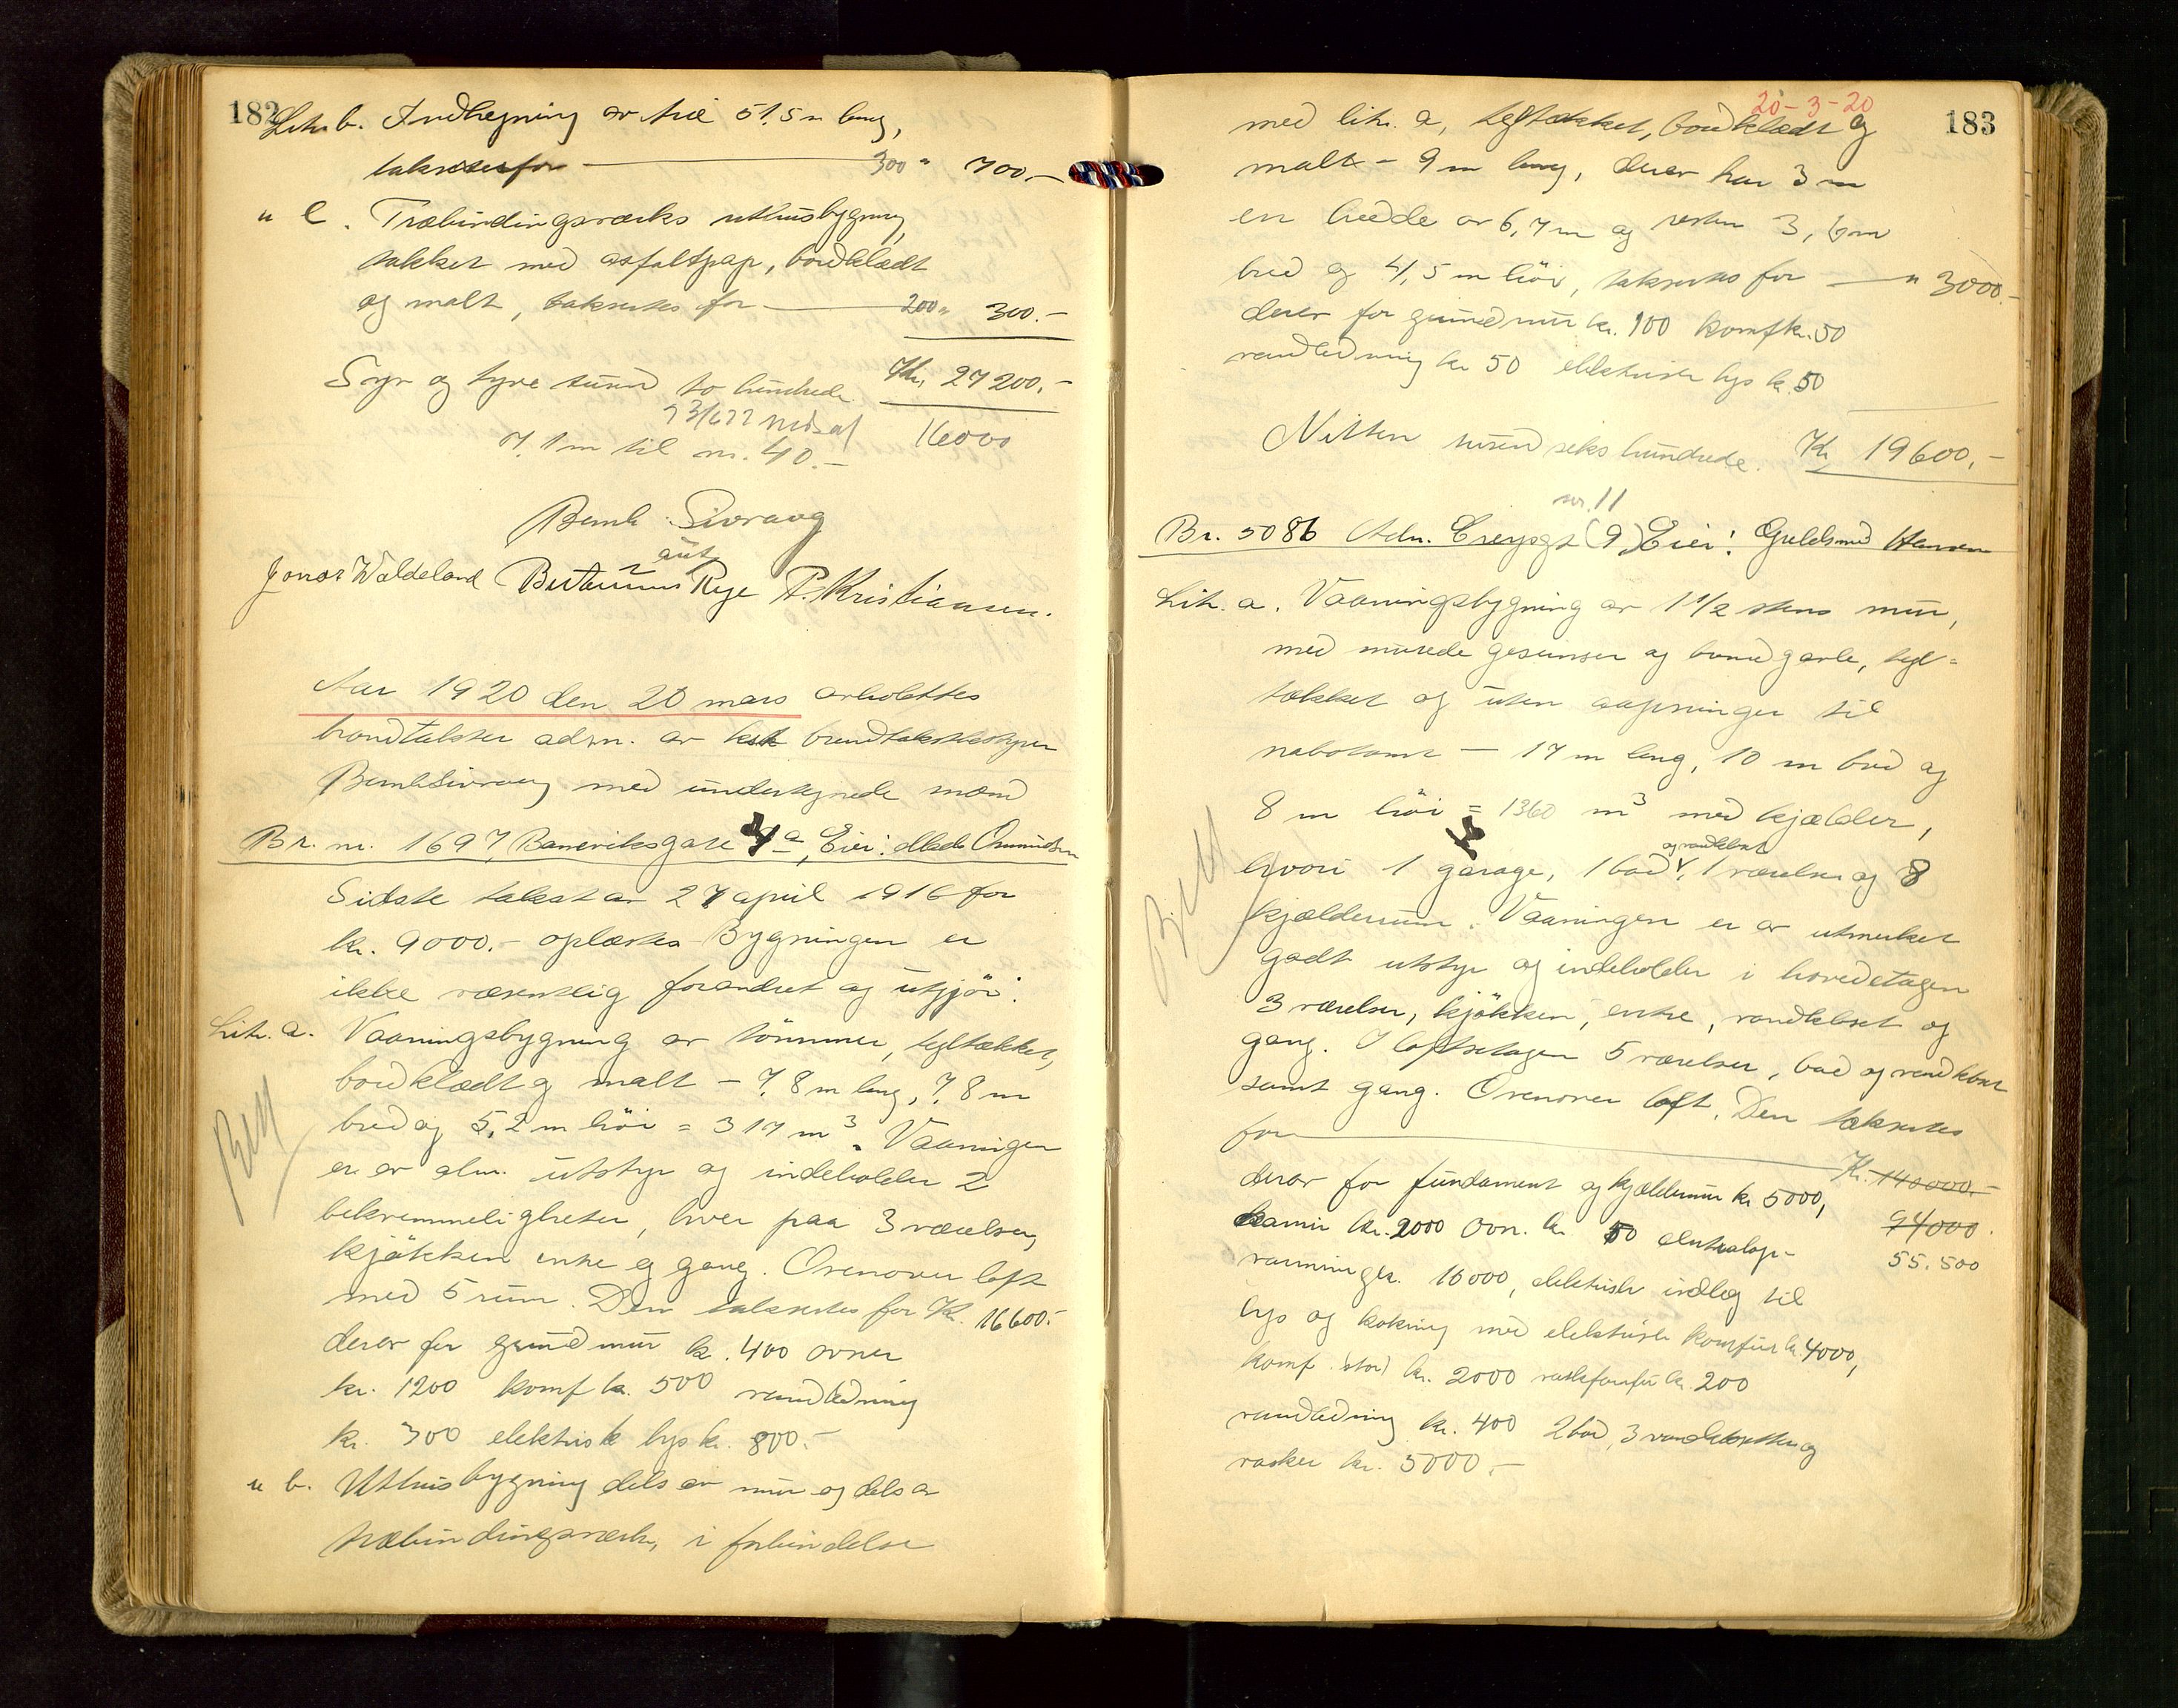 182
Litr. b. Indhegning av træ 51,5 m lang,
takseres for 300 " 700,-
" c. Træbindingsværks uthusbygning,
tækket med asfaltpap, bordklædt
og malt, takseres for 200 " 300.-
Syv og tyve tusind to hundrede Kr. 27200.-
23/6 22 16000
7.1m til nr. 40.-
Bernh. Sivraag
Jonas Waldeland Bertinius Rege P. Kristiansen.
Aar 1920 den 20 mars avholdtes
brandtakster adm. av brandtakstbestyrer
Bernh Sivraag med undertegnede mænd
Br. nr. 1697, Banevigsgate 4a, Eier:
Sidste takst av 27 april 1916 for
kr. 9000.- oplæstes Bygningen er
ikke væsentlig forandret og utgjör:
Litr. a. Vaaningsbygning av tömmer, tegltækket,
bordklædt og malt - 7,8 m lang, 7,8 m
bred og 5,2 m höi = 317 m³. Vaaningen
er av alm. utstyr og indeholder 2
bekvemmeligheter, hver paa 3 værelser,
kjökken entre og gang. Ovenover loft
med 5 rum. Den takseres for Kr. 16600.-
derav for grundmur kr. 400 ovner
kr. 1200 komf kr. 500 vandledning
kr. 300 elektrisk lys kr. 800.-
" b. Uthusbygning dels av mur og dels av
træbindingsverk, i forbindelse
20-3-20
183
med litr. a, tegltækket, bordklædt og
malt - 9 m lang, derav har 3 m
en bredde av 6,7 m og resten 3,6 m
bred og 4,5 m höi, takseres for " 3000.-
derav for grundmur kr. 100 komf kr. 50
vandledning kr 50 elektrisk lys kr. 50
Nitten tusend seks hundrede. Kr. 19600,-
nr. 11
Br. 5086 (9) Eier: Guldsmed Hansen
Litr. a. Vaaningsbygning av 1 1/2 stens mur,
med murede gesimser og brandgavle, tegl-
tækket og uten aapninger til
nabotomt - 17 m lang, 10 m bred og
8 m höi = 1360 m³ med kjælder,
og vandklost
hvori 1 garage, 1 bad, 1 værelse og 8
kjælderrum. Vaaningen er av utmerket
godt utstyr og indeholder i hovedetagen
3 værelser, kjökken, entre, vandklost og
gang. I loftsetagen 5 værelser, bad og vandklost
samt gang. Ovenover loft. Den takseres
for Kr. 140000.-
derav for fundament og kjældermur kr 5000, 94000
kamin kr. 2000 ovn. kr. 50 centralop- 55.500
varmning kr. 16000, elektrisk indlæg til
lys og kokning med elektrisk komfur kr. 4000,
komf. (stor) kr. 2000 vaskkomfur kr. 200
vandledning kr. 400 2 bad, 3 vandklosetter og
vasker kr. 5000.-